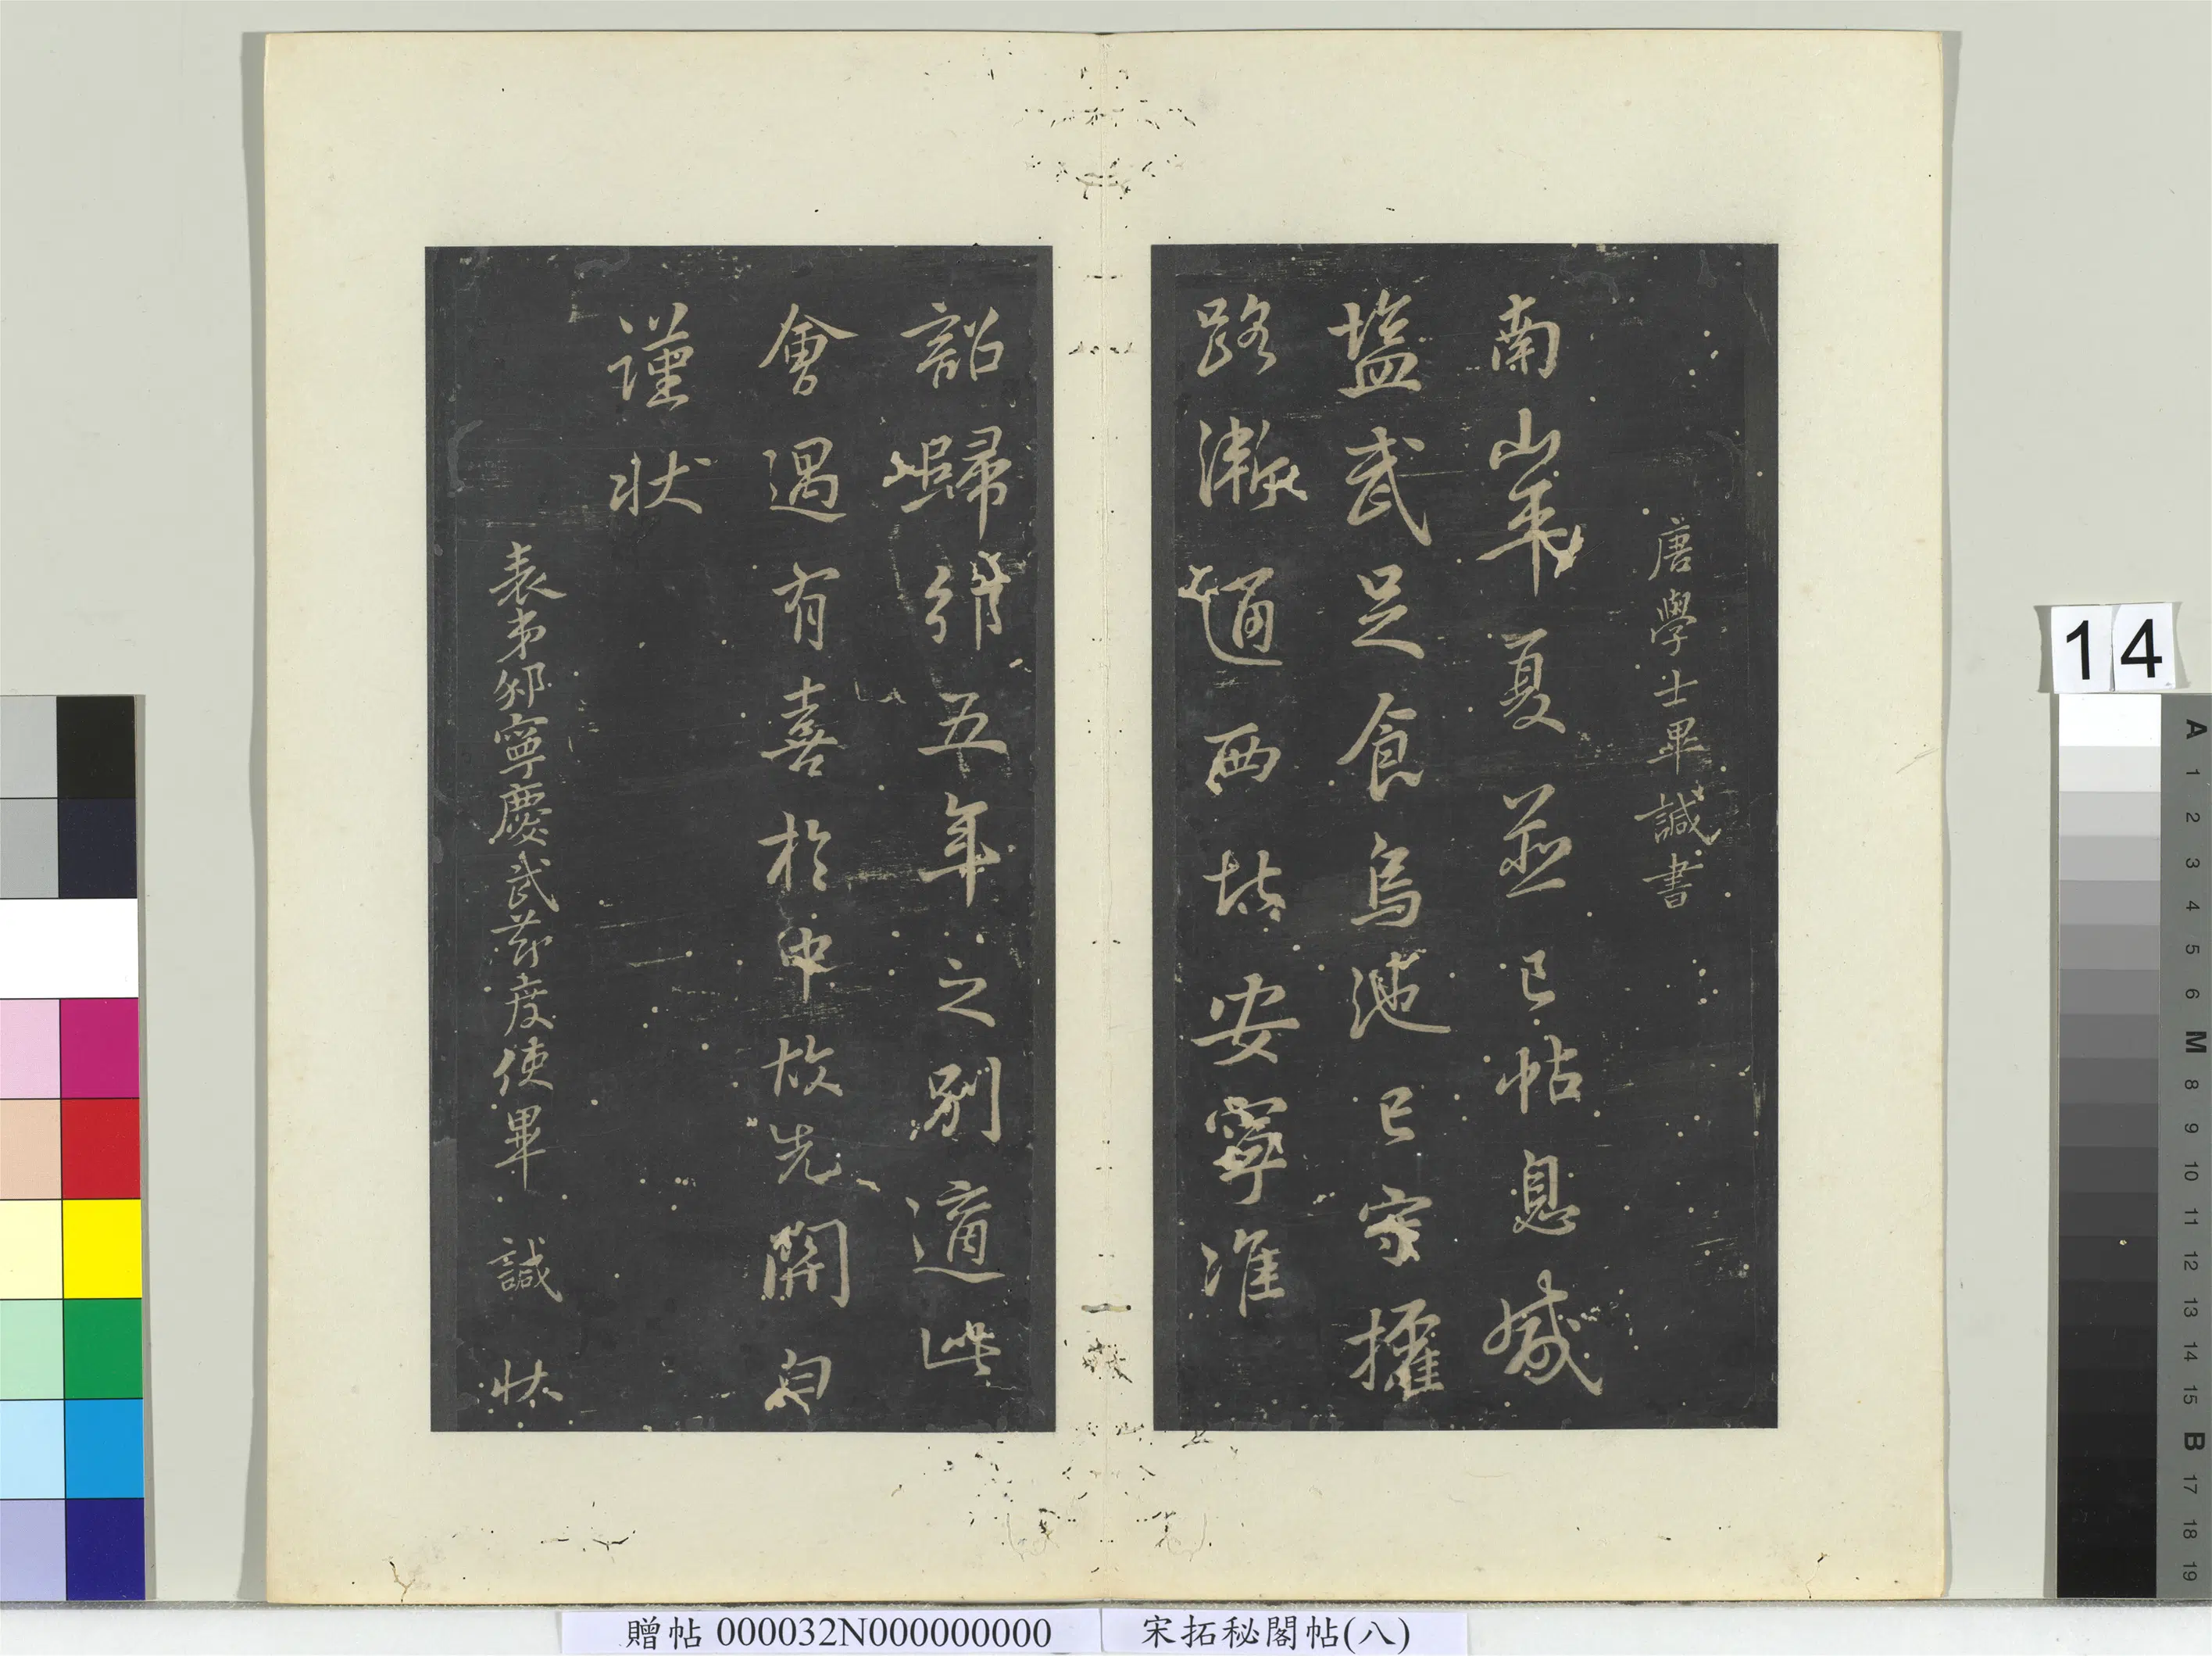 唐學士畢諴書
南山平夏並已帖息
塩武足食烏池已守攉
路漸通西安寧准
詔歸五年之別適此
會遇有喜於中故先開白
謹狀
表弟邠寧慶武節度使畢 諴 狀
14
贈帖 000032N000000000
宋拓秘閣帖(八)
A 1 2 3 4 5 6 M 8 9 10 11 12 13 14 15 B 17 18 19